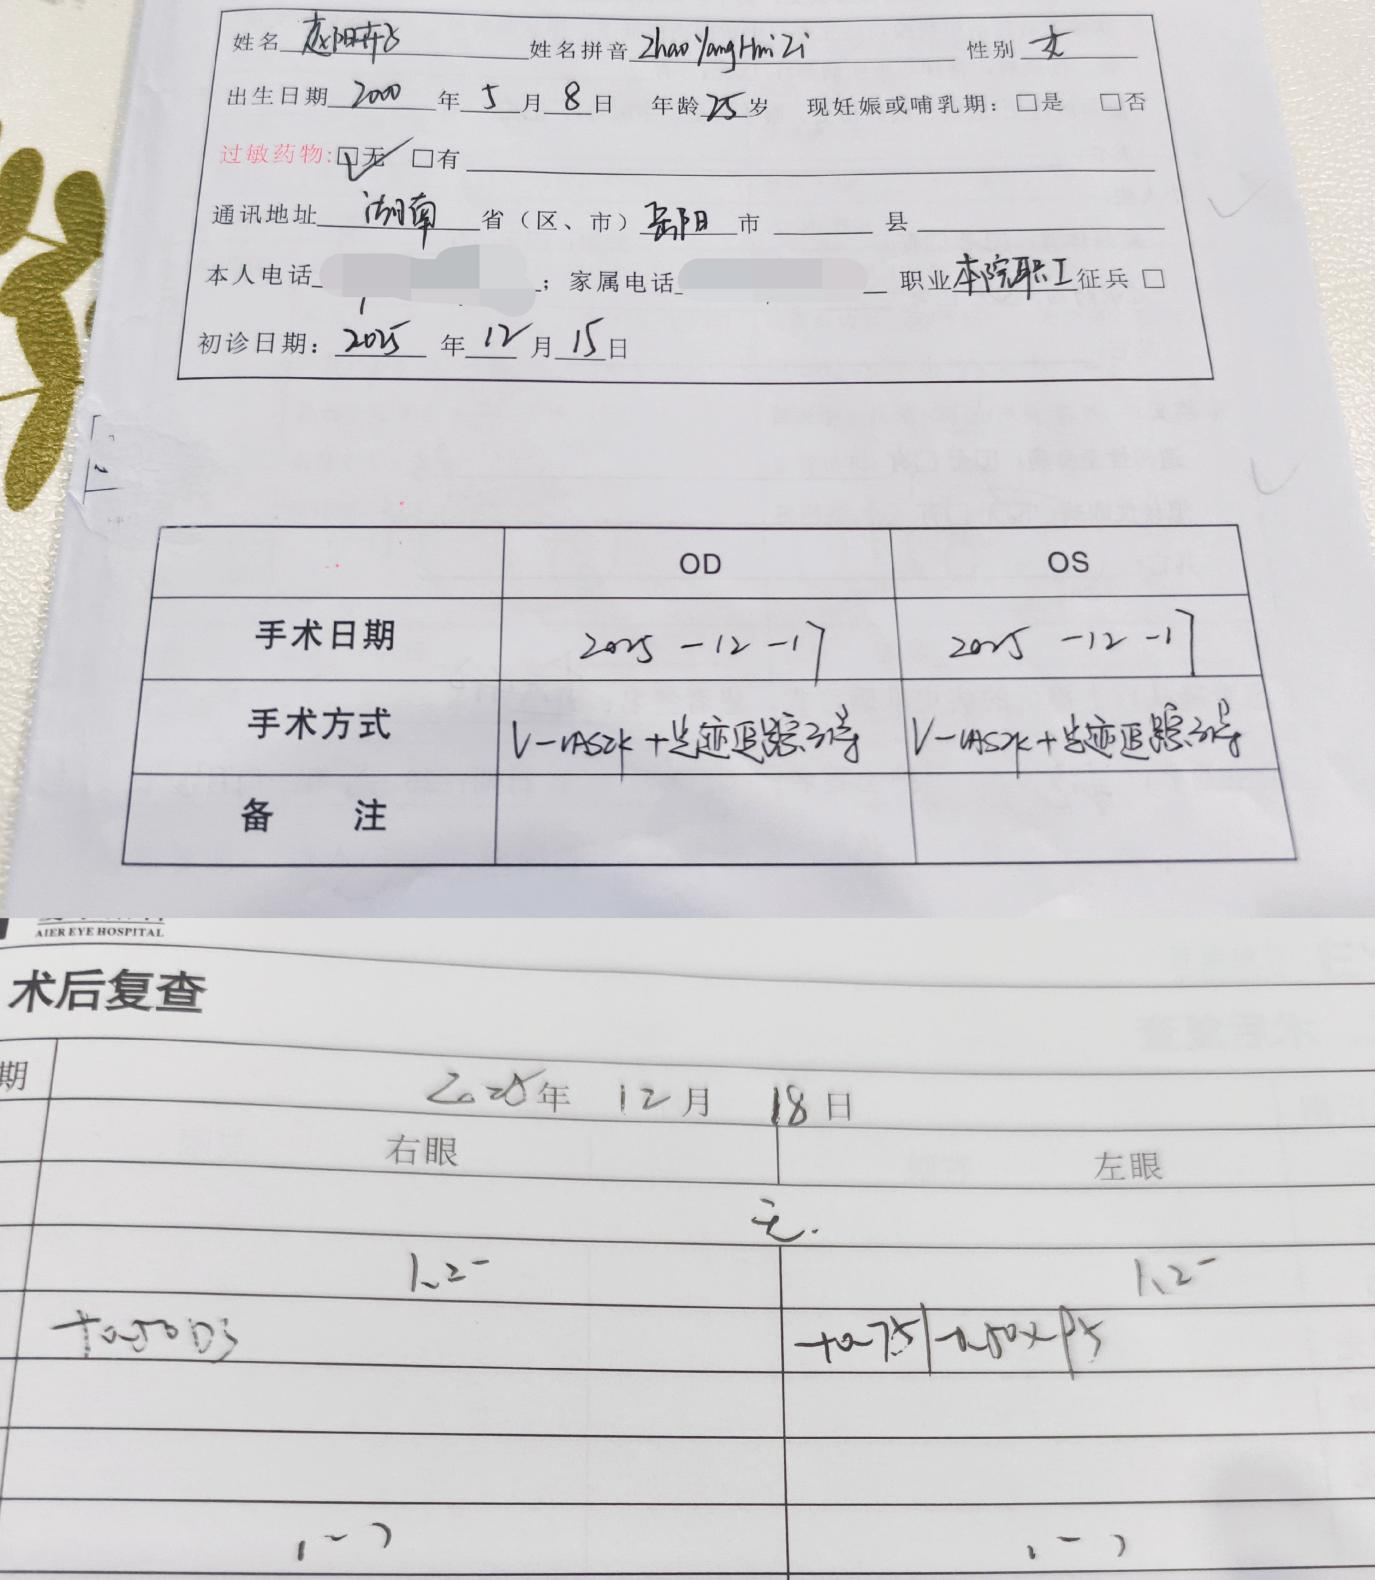 姓名 赵阳卉子 姓名拼音 Zhao Yang Hui Zi 性别 女
出生日期 2000 年 5 月 8 日 年龄 25 岁 现妊娠或哺乳期：□是 □否
过敏药物：□无 □有
通讯地址 湖南 省（区、市）岳阳 市 县
本人电话 ；家属电话 职业 本院职工 征兵 □
初诊日期：2025 年 12 月 15 日
OD OS
手术日期 2025-12-17 2025-12-17
手术方式 V-LASIK+光迹追踪引导 V-LASIK+光迹追踪引导
备 注
AIER EYE HOSPITAL
术后复查
期 2025年 12月 18日
右眼 左眼
无.
1.2- 1.2-
+0.50DS +0.75/-0.50×95
(-) (-)